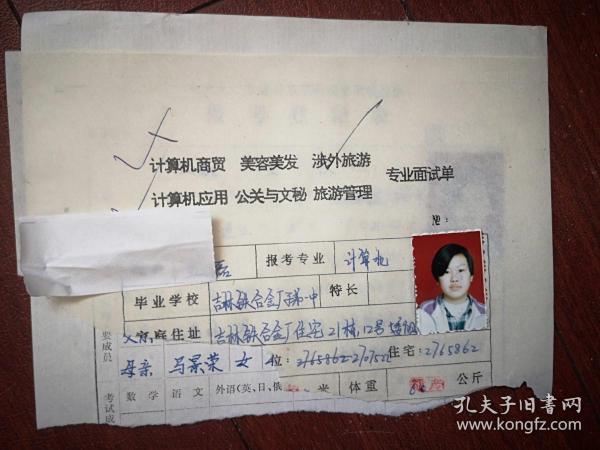 计算机商贸 美容美发 涉外旅游
计算机应用 公关与文秘 旅游管理 专业面试单
№:
磊 报考专业 计算机
毕业学校 吉林铁合金厂第一中 特长
父亲 家庭住址 吉林铁合金厂住宅21栋12号
要成员
母亲 马景荣 女 位: 2765862 住宅: 2765862
考试成
数学 语文 外语(英、日、俄 米 体重 公斤
孔夫子旧书网